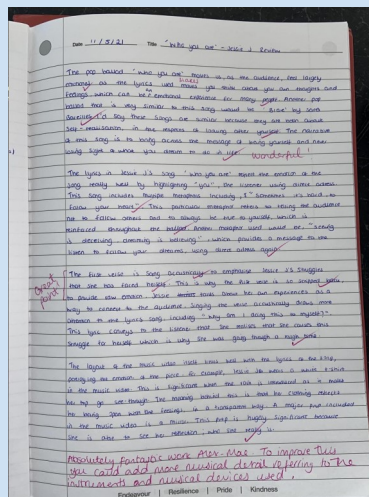 Date 11/5/21 Title "Who you are" - Jessie J Review
The pop ballad "who you are" moves us, as the audience, feel largely
emotional as the lyrics well makes you think about you own thoughts and
feelings, which can be an emotional experience for many people. Another pop
ballad that is very similar to this song would be by
say these songs are similar because they are both about
self-realisation, in the respects of loving other yourself. The narrative
of this song is to bring across the message of being yourself and never
losing sight of what you dream to do in life.
wonderful!
The lyrics in Jessie J's song "who you are" reflect the emotion of the
song really well by highlighting "you", the listener using direct address.
This song includes multiple metaphors including, " sometimes it's hard to
follow your heart". This particular metaphor refers to telling the audience
not to follow others and to always be true to yourself, which is
reinforced throughout the ballad. Another metaphor used would be, "seeing
is deceiving, dreaming is believing", which provides a message to the
listen to follow your dreams, using direct address again.
Great point!
The first verse is sang acoustically to emphasise Jessie J's struggles
that she has faced herself. This is why the first verse is so stripped back,
to provide raw emotion. Jessie talks about her own experiences as a
way to connect to the audience. Singing the verse acoustically draws more
attention to the lyrics sang, including "why am I doing this to myself?"
This lyric conveys to the listener that she realises that she causes this
struggle for herself, which is why she was going through a rough time.
The layout of the music video itself links well with the lyrics of the song,
portraying the emotion in the piece. For example, Jessie J wears a white t-shirt
in the music video. This is significant when the rain is introduced as it makes
her top go see-through. The meaning behind this is that her clothing reflects
her being open with her feelings, in a transparent way. A major prop included
in the music video is a mirror. This prop is highly significant because
she is able to see her reflection, who she really is.
Absolutely fantastic work. To improve this
you could add more musical detail referring to the
instruments and musical devices used.
Endeavour | Resilience | Pride | Kindness